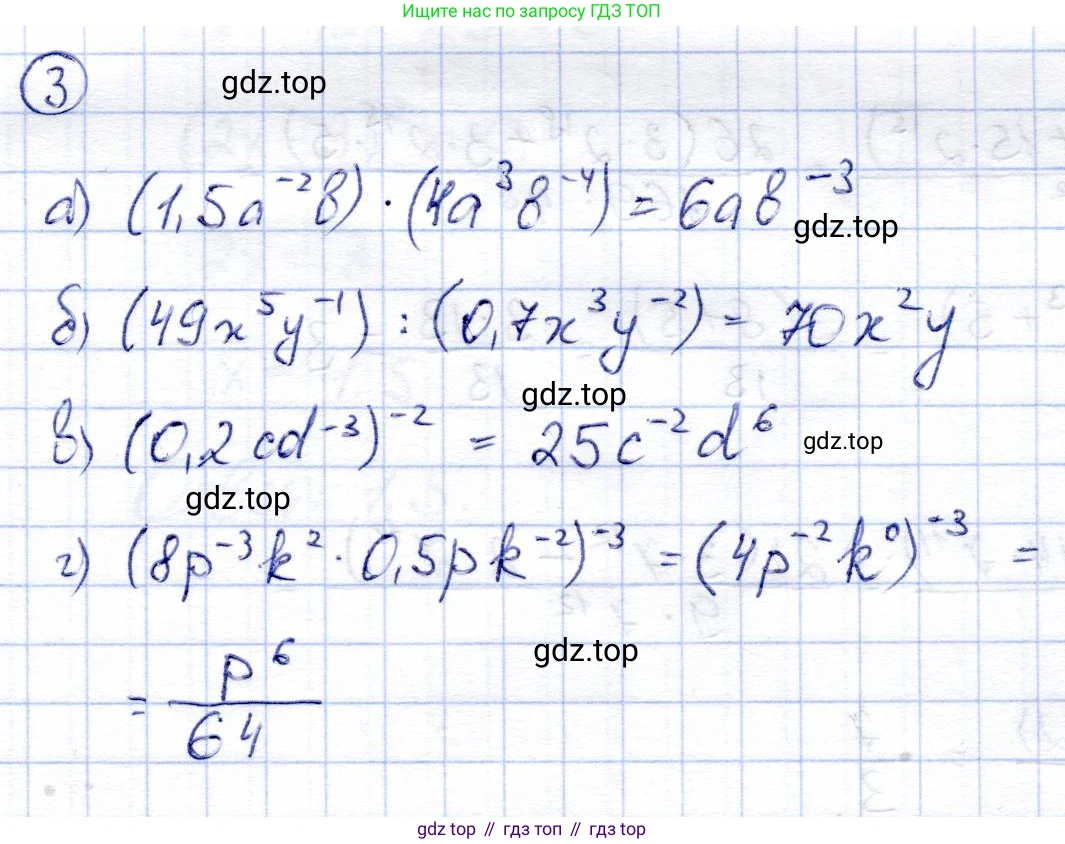 Ищите нас по запросу ГДЗ ТОП
3
gdz.top
а) (1,5a⁻²b) · (4a³b⁻⁴) = 6ab⁻³
gdz.top
б) (49x⁵y⁻¹) : (0,7x³y⁻²) = 70x²y
gdz.top
в) (0,2cd⁻³)⁻² = 25c⁻²d⁶
gdz.top
gdz.top
г) (8p⁻³k² · 0,5pk⁻²)⁻³ = (4p⁻²k⁰)⁻³ =
gdz.top
= p⁶/64
gdz top // гдз топ // gdz top